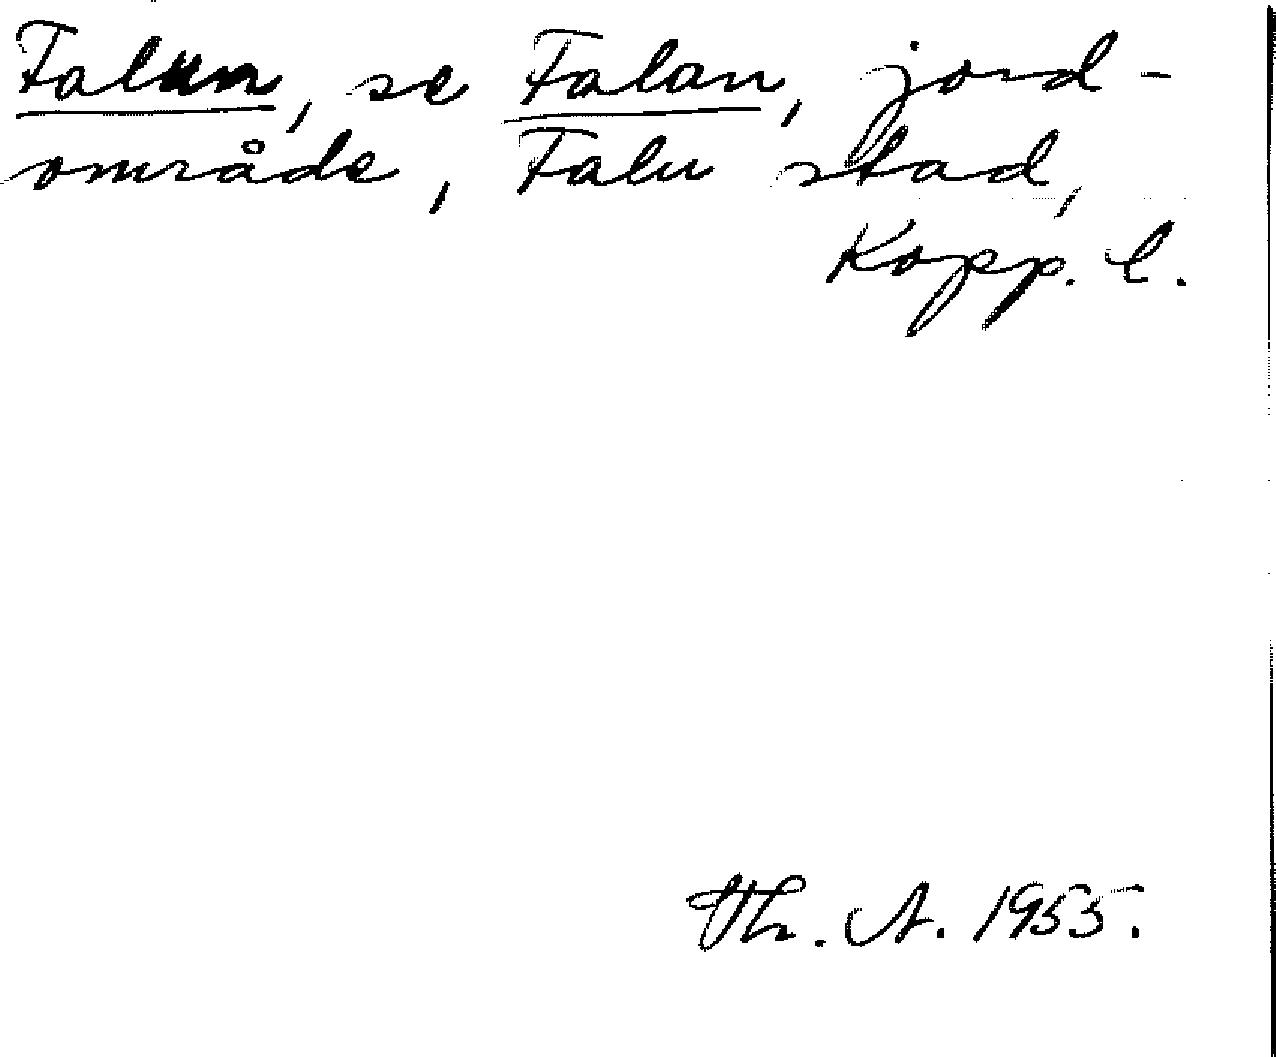 Falun, se Falan, jord-
område, Falu stad,
Kopp. l.
Th. A. 1955.